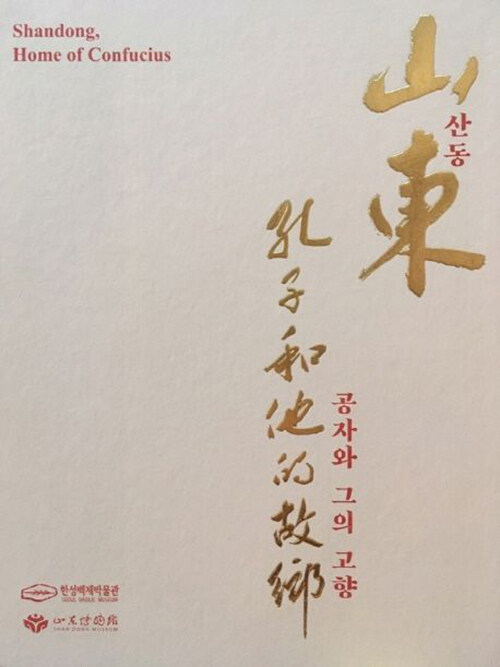 Shandong,
Home of Confucius
山東
산동
孔子和他的故鄉
공자와 그의 고향
한성백제박물관
SEOUL BAEKJE MUSEUM
山东博物馆
SHAN DONG MUSEUM